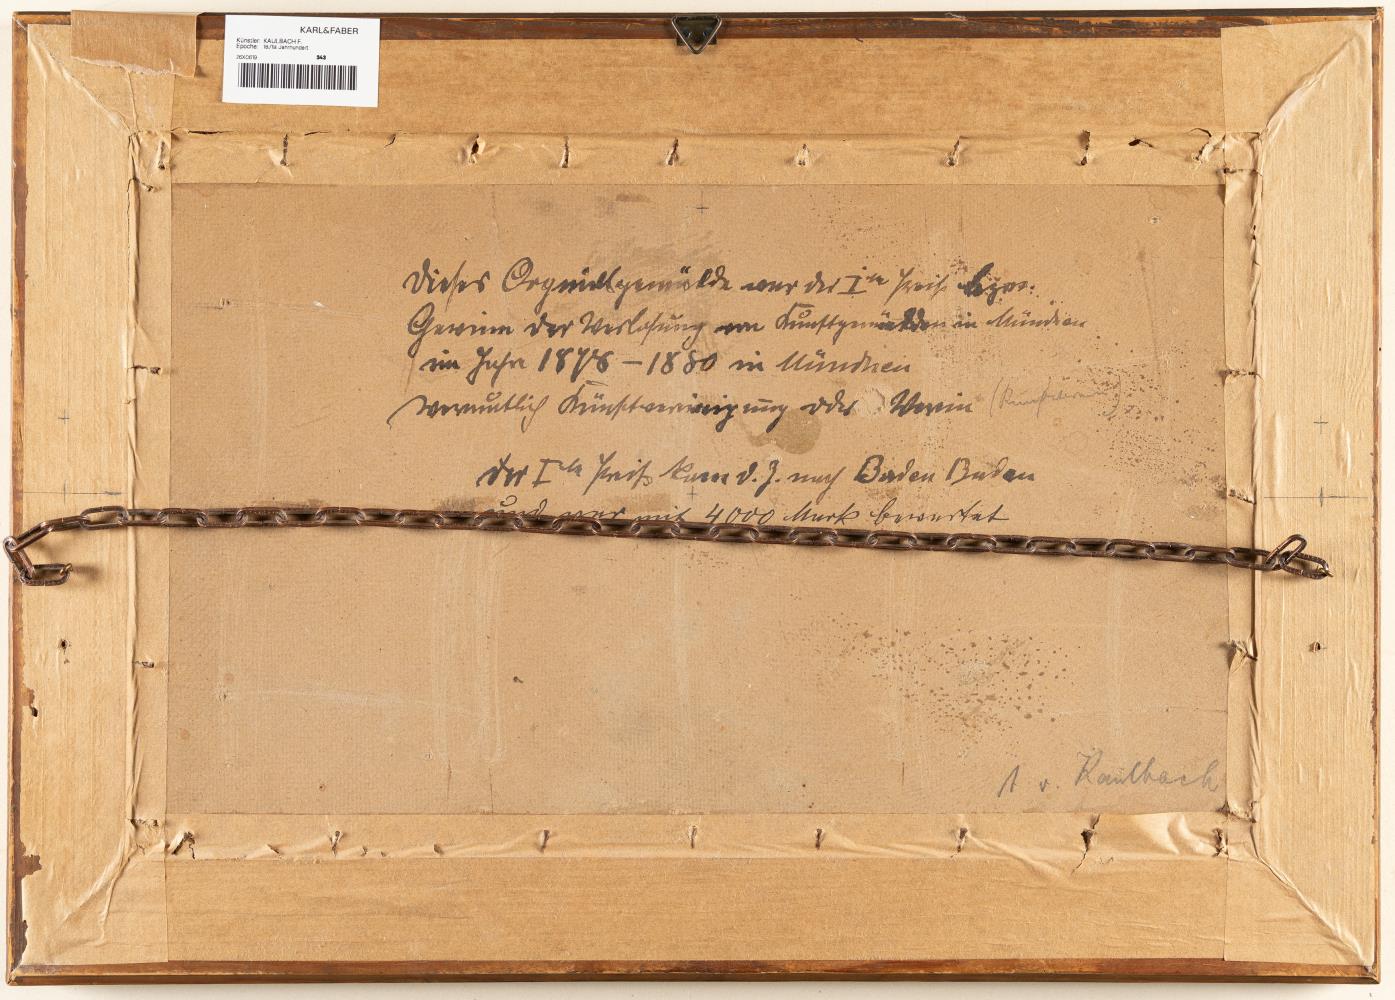 KARL&FABER
Künstler: KAULBACH F.
Epoche: 18./19. Jahrhundert
343
Dieses Orginalgemälde war der I te Preis bezw.
Gewinn der Verlosung von Kunstgemälden in München
im Jahre 1878 – 1880 in München
vermutlich Kunstvereinigung oder Verein (Kunstverein)
Der I te Preis kam d. J. nach Baden Baden
und war mit 4000 Mark bewertet
v. Kaulbach